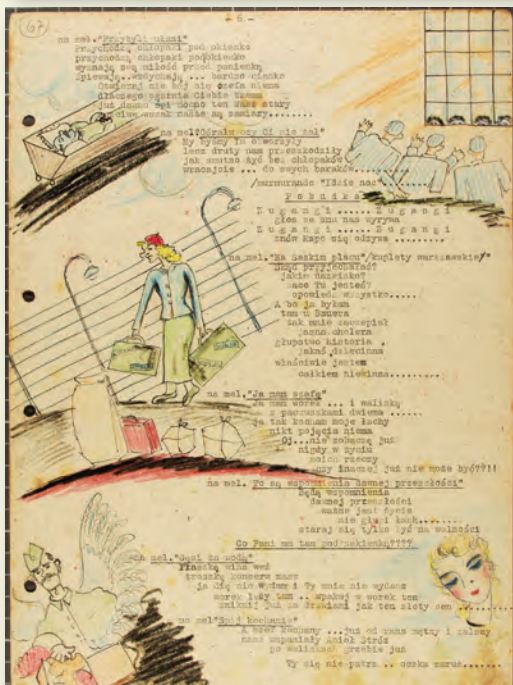 67
- 6 -
na mel. "Przybyli ułani"
Przychodzą chłopaki pod okienko
przychodzą chłopaki pod okienko
wyznają swą miłość przed panienką
Śpiewają..wzdychają ... bardzo cienko
Otwieraj nie bój się szefa niema
dlaczego ogarnia Ciebie
już dawno śpi mocno ten Wasz stary
wszak nasze są zamiary........
na mel. "Góralu czy Ci nie żal"
My byśmy Tu otworzyły
lecz druty nam przeszkodziły
jak smutno żyć bez chłopaków
wracajcie ... do swych baraków.
/murmurando "Idzie noc"
P o b u d k a
Z u g a n g i ...... Z u g a n g i
głos ze snu nas wyrywa
Z u g a n g i ...... Z u g a n g i
znów kapo się odzywa .........
na mel. "Na Saskim placu" /kuplety warszawskie/"
Skąd przyjechałaś?
jakie nazwisko?
zaco Tu jesteś?
opowiedz wszystko.....
A bo ja byłam
tam u Bauera
tak mnie zaczepiał
jasna cholera
głupstwo historia .
jakaś dziecinna
właściwie jestem
całkiem niewinna.........
na mel. "Ja mam szafę"
Ja mam worek ... i walizkę
z paczuszkami dwiema ......
ja tak kocham moje łachy
nikt pojęcia niema
Oj...nie zobaczę już
nigdy w życiu
moich rzeczy
czy inaczej już nie może być??!!
na mel. "To są wspomnienia dawnej przeszłości"
Będą wspomnienia
dawnej przeszłości
ważne jest życie
nie głupi łach........
staraj się tylko żyć na wolności
Co Pani ma tam pod sukienką????
na mel. "Gęsi za wodą"
Flaszkę wina weź
troszkę konserw masz
ja Cię nie wydam i Ty mnie nie wydasz
worek leży tam .. wpakuj w worek ten
zniknij już za drzwiami jak ten złoty sen .........
na mel "Śnij kochanie"
A szef kochany ...już od nas mętny i zalany
nasz wspaniały Anioł Stróż
po walizkach grzebie już
Ty się nie patrz .. oczka zmruż.......